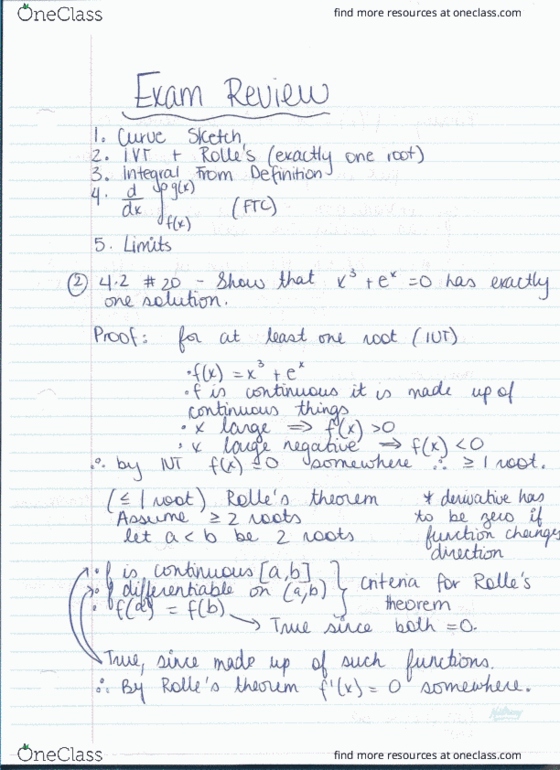 OneClass
find more resources at oneclass.com
Exam Review
1. Curve Sketch
2. IVT + Rolle's (exactly one root)
3. Integral From Definition
4. d/dx ∫ g(x) f(x) (FTC)
5. Limits
② 4.2 #20 - Show that x³ + eˣ = 0 has exactly
one solution.
Proof: for at least one root (IVT)
· f(x) = x³ + eˣ
· f is continuous it is made up of
continuous things
· x large ⇒ f(x) > 0
· x large negative ⇒ f(x) < 0
∴ by IVT f(x) = 0 somewhere ∴ ≥ 1 root.
(≤ 1 root) Rolle's theorem
* derivative has
to be zero if
function changes
direction
Assume ≥ 2 roots
let a < b be 2 roots
· f is continuous [a,b]
· f differentiable on (a,b)
· f(a) = f(b)
} criteria for Rolle's
theorem
→ True since both = 0.
True, since made up of such functions.
∴ By Rolle's theorem f'(x) = 0 somewhere.
OneClass
find more resources at oneclass.com